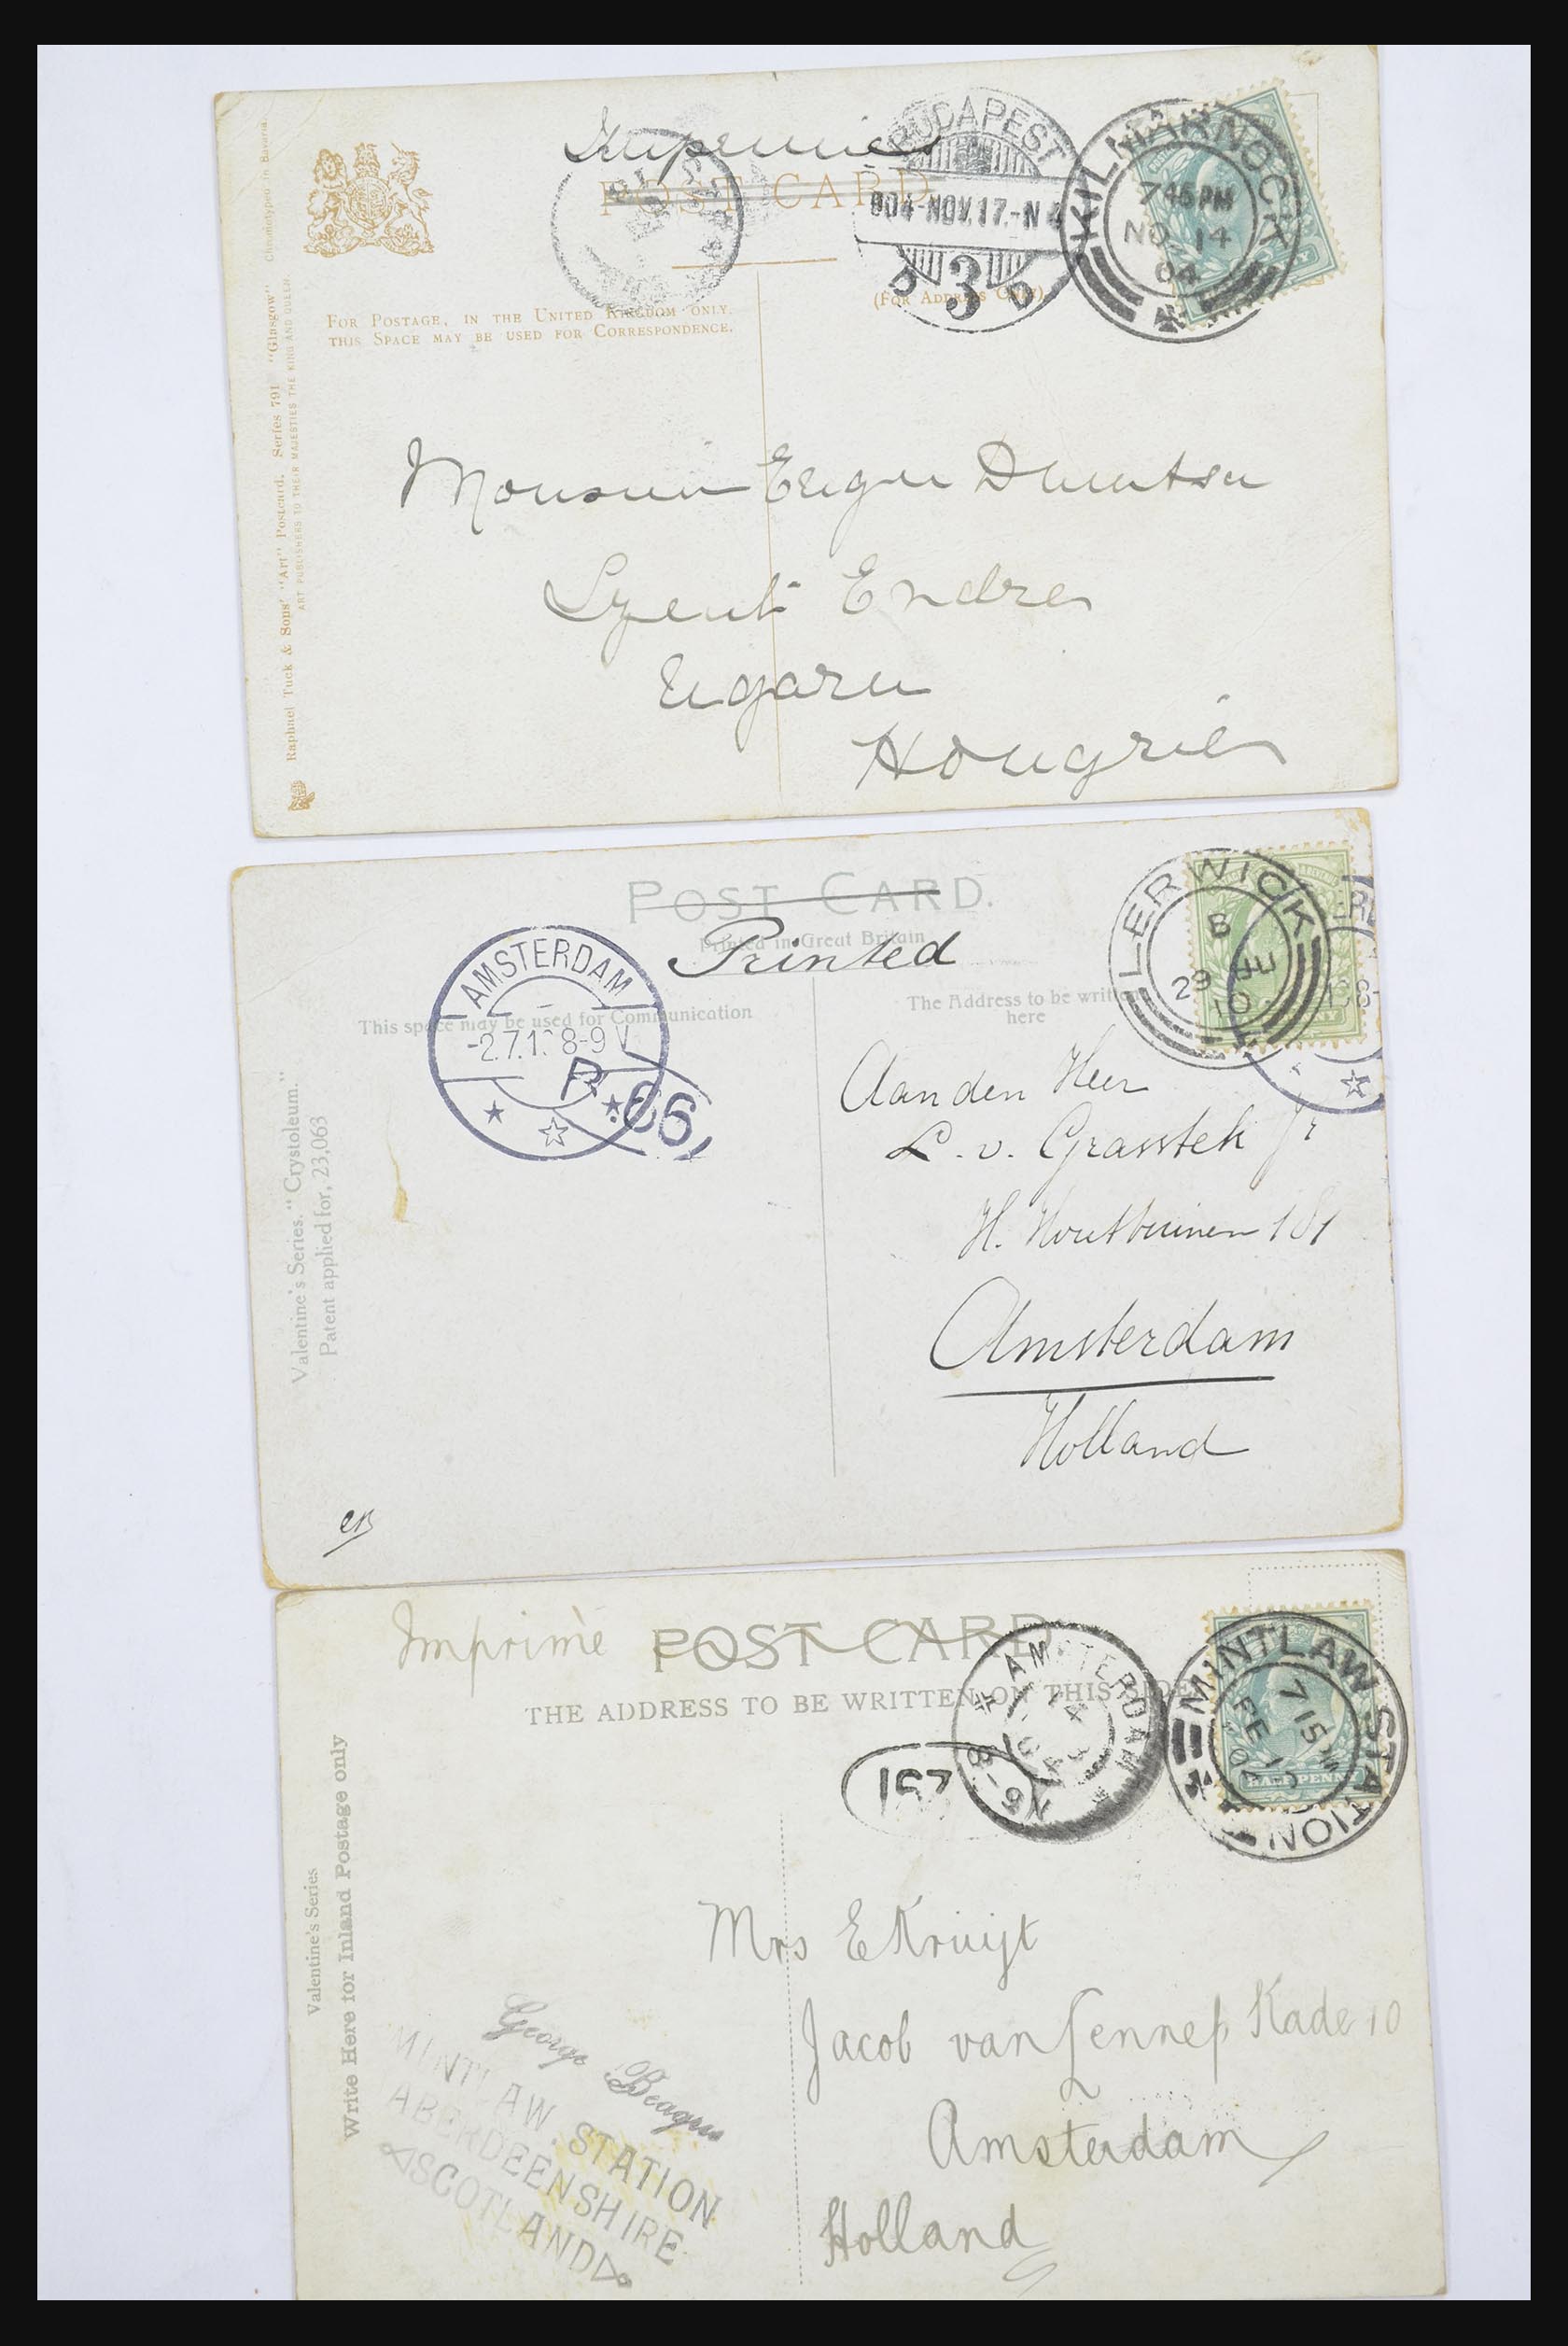 Imprimé
POST CARD
BUDAPEST
904-NOV.17.-N4
3
KILMARNOCK
745PM
NO 14
04
(FOR ADDRESS ONLY)
FOR POSTAGE, IN THE UNITED KINGDOM ONLY,
THIS SPACE MAY BE USED FOR CORRESPONDENCE.
Raphael Tuck & Sons' "Art" Postcard. Series 791 "Glasgow" Chromotyped in Bavaria.
ART PUBLISHERS TO THEIR MAJESTIES THE KING AND QUEEN.
Szent Endre
Hongrie
POST CARD.
Printed in Great Britain
Printed
AMSTERDAM
8-9 V
66
LERWICK
B
29 JE
10
This space may be used for Communication
The Address to be written
here
Aan den Heer
L. v. Jr
H. Houttuinen 181
Amsterdam
Holland
Valentine's Series. "Crystoleum."
Patent applied for, 23,063
Imprimè
POST CARD
THE ADDRESS TO BE WRITTEN ON THIS SIDE
AMSTERDAM
157
MINTLAW STATION
715PM
FE
04
HALFPENNY
Mrs E Kruijt
Jacob van Lennep Kade 10
Amsterdam
Holland
Valentine's Series
Write Here for Inland Postage only
George
MINTLAW. STATION
ABERDEENSHIRE
SCOTLAND